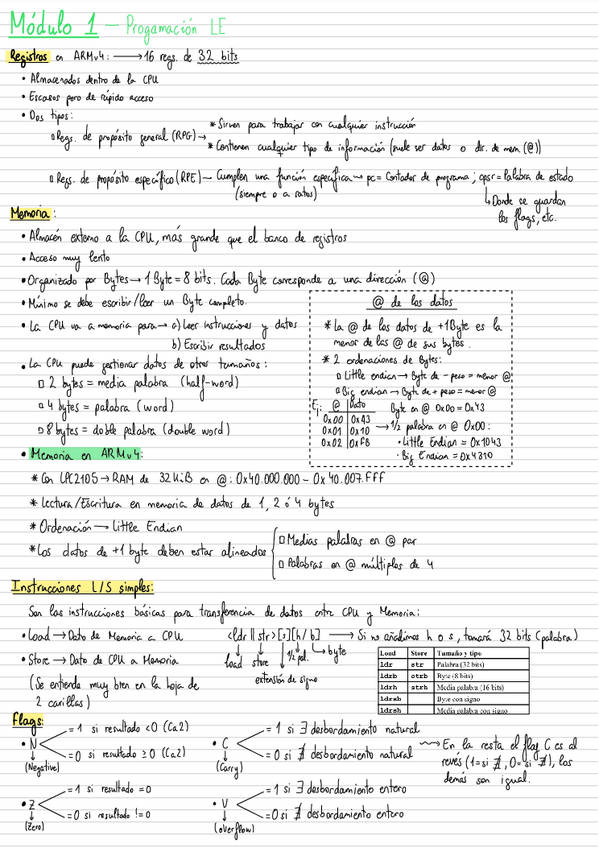 Módulo 1 – Progamación LE
Registros en ARMv4: ⟶ 16 regs. de 32 bits
• Almacenados dentro de la CPU
• Escasos pero de rápido acceso
• Dos tipos:
▫ Regs. de propósito general (RPG) → * Sirven para trabajar con cualquier instrucción
* Contienen cualquier tipo de información (puede ser datos o dir. de mem (@))
▫ Regs. de propósito específico (RPE) — Cumplen una función específica → pc = Contador de programa; cpsr = Palabra de estado
(siempre o a ratos)
↳ Donde se guardan los flags, etc.
Memoria:
• Almacén externo a la CPU, más grande que el banco de registros
• Acceso muy lento
• Organizado por Bytes → 1 Byte = 8 bits. Cada Byte corresponde a una dirección (@)
• Mínimo se debe escribir/leer un Byte completo.
• La CPU va a memoria para → a) Leer instrucciones y datos
b) Escribir resultados
• La CPU puede gestionar datos de otros tamaños:
▫ 2 bytes = media palabra (half-word)
▫ 4 bytes = palabra (word)
▫ 8 bytes = doble palabra (double word)
@ de los datos
* La @ de los datos de +1Byte es la
menor de las @ de sus bytes.
* 2 ordenaciones de Bytes:
▫ Little endian → Byte de - peso = menor @
▫ Big endian → Byte de + peso = menor @
Ej: @ | Dato
0x00 | 0x43
0x01 | 0x10
0x02 | 0xFB
Byte en @ 0x00 = 0x43
→ 1/2 palabra en @ 0x00:
• Little Endian = 0x1043
• Big Endian = 0x4310
• Memoria en ARMv4:
* Con LPC2105 → RAM de 32 KiB en @: 0x40.000.000 - 0x40.007.FFF
* Lectura/Escritura en memoria de datos de 1, 2 ó 4 bytes
* Ordenación → Little Endian
* Los datos de +1 byte deben estar alineados
▫ Medias palabras en @ par
▫ Palabras en @ múltiplos de 4
Instrucciones L/S simples:
Son las instrucciones básicas para transferencia de datos entre CPU y Memoria:
• Load → Dato de Memoria a CPU
<ldr || str>[s][h/b] ⟶ Si no añadimos h o s, tomará 32 bits (palabra)
load store 1/2 pal. byte
extensión de signo
• Store → Dato de CPU a Memoria
(Se entiende muy bien en la hoja de
2 carillas)
Load Store Tamaño y tipo
ldr str Palabra (32 bits)
ldrb strb Byte (8 bits)
ldrh strh Media palabra (16 bits)
ldrsb Byte con signo
ldrsh Media palabra con signo
Flags:
• N = 1 si resultado <0 (Ca2)
= 0 si resultado ≥ 0 (Ca2)
(Negative)
• C = 1 si ∃ desbordamiento natural
= 0 si ∄ desbordamiento natural
(Carry)
→ En la resta el flag C es al
revés (1=si ∄, 0= si ∃), los
demás son igual.
• Z = 1 si resultado = 0
= 0 si resultado != 0
(Zero)
• V = 1 si ∃ desbordamiento entero
= 0 si ∄ desbordamiento entero
(overflow)